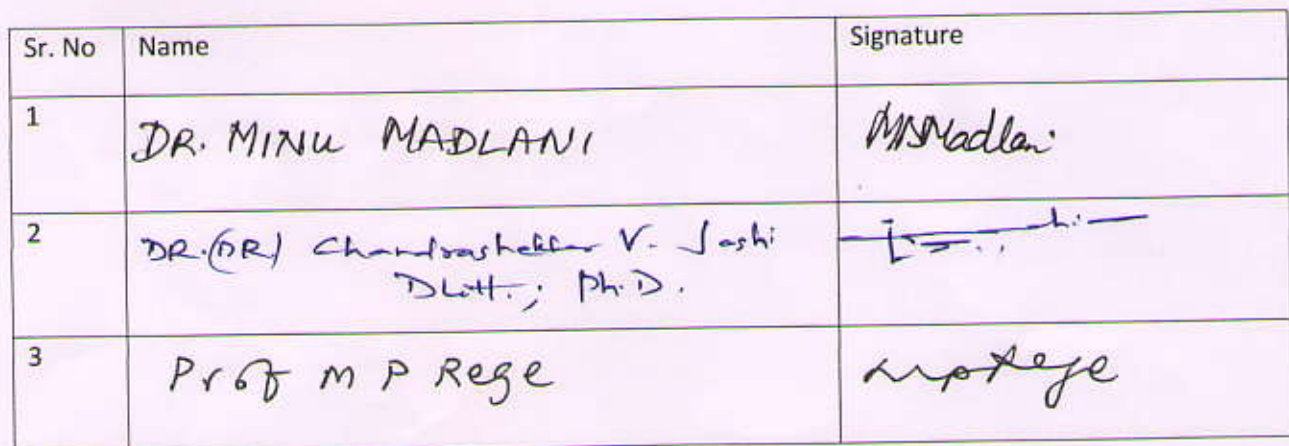 Sr. No Name Signature
1 DR. MINU MADLANI MSMadlani
2 DR.(DR) Chandrashekhar V. Joshi
DLitt.; Ph.D.
3 Prof M P Rege mpRege